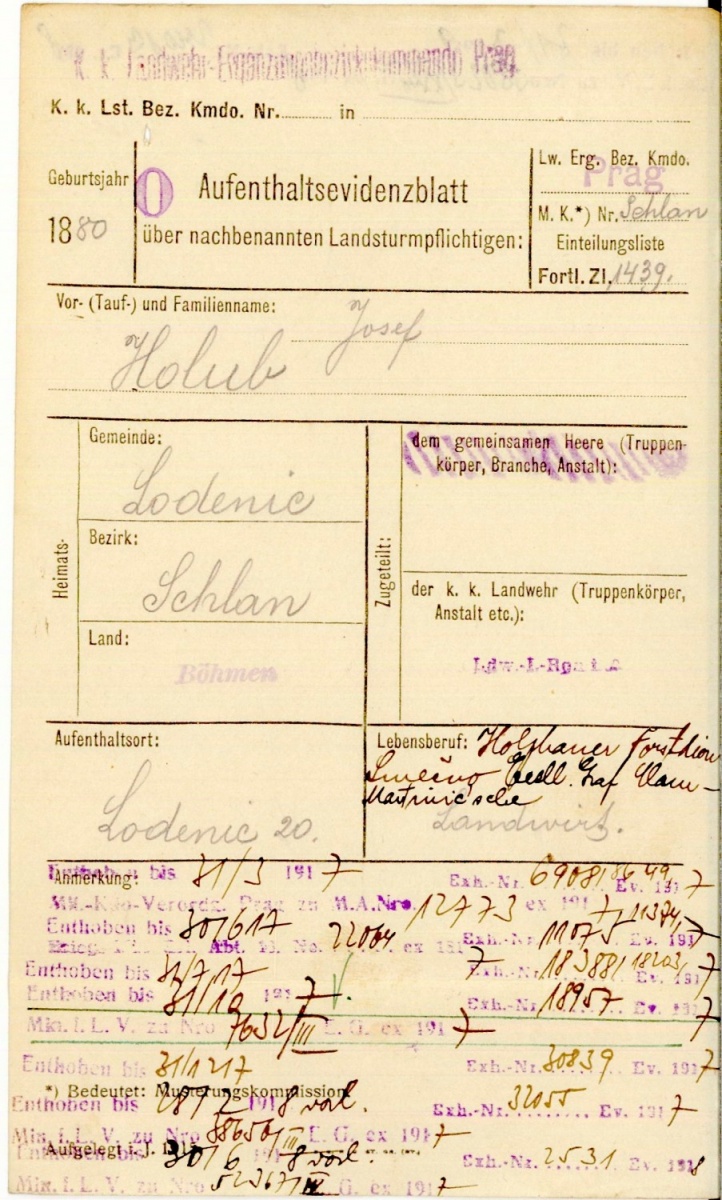 k. k. Landwehr-Ergänzungsbezirkskommando Prag
K. k. Lst. Bez. Kmdo. Nr. in
Geburtsjahr
1880
O
Aufenthaltsevidenzblatt
über nachbenannten Landsturmpflichtigen:
Lw. Erg. Bez. Kmdo.
Prag
M. K.*) Nr. Schlan
Einteilungsliste
Fortl. Zl. 1439.
Vor- (Tauf-) und Familienname:
Josef
Holub
Heimats-
Gemeinde:
Lodenic
Bezirk:
Schlan
Land:
Böhmen
Zugeteilt:
dem gemeinsamen Heere (Truppen-
körper, Branche, Anstalt):
der k. k. Landwehr (Truppenkörper,
Anstalt etc.):
Aufenthaltsort:
Lodenic 20.
Lebensberuf: Holzhauer Forstdion
Smečno Graf Clam-
Martinic'sche
Landwirt.
Anmerkung:
Enthoben bis 31/3 1917 Exh.-Nr. 6908/8649 Ev. 1917
Mil.-Kdo-Verordg. Prag zu M.A.Nro. 12773 ex 1917
Enthoben bis 30/6 17 Exh.-Nr. 11075 11374 Ev. 1917
Abt. No. 22064 ex 1917
Enthoben bis 31/7 17 Exh.-Nr. 18388/18203 Ev. 1917
Enthoben bis 31/10 1917. Exh.-Nr. 18957 Ev. 1917
Min. f. L. V. zu Nro 7632/III E. G. ex 1917
Enthoben bis 31/12 17 Exh.-Nr. 30839 Ev. 1917
*) Bedeutet: Musterungskommission
Enthoben bis 28/2 1918 vorl. Exh.-Nr. 32055 Ev. 1917
Min. f. L. V. zu Nro 38650/III E. G. ex 1917
Aufgelegt i. J. 1915
Enthoben bis 30/6 1918 vorl. Exh.-Nr. 2531 Ev. 1918
Min. f. L. V. zu Nro 52367/IV E. G. ex 1917